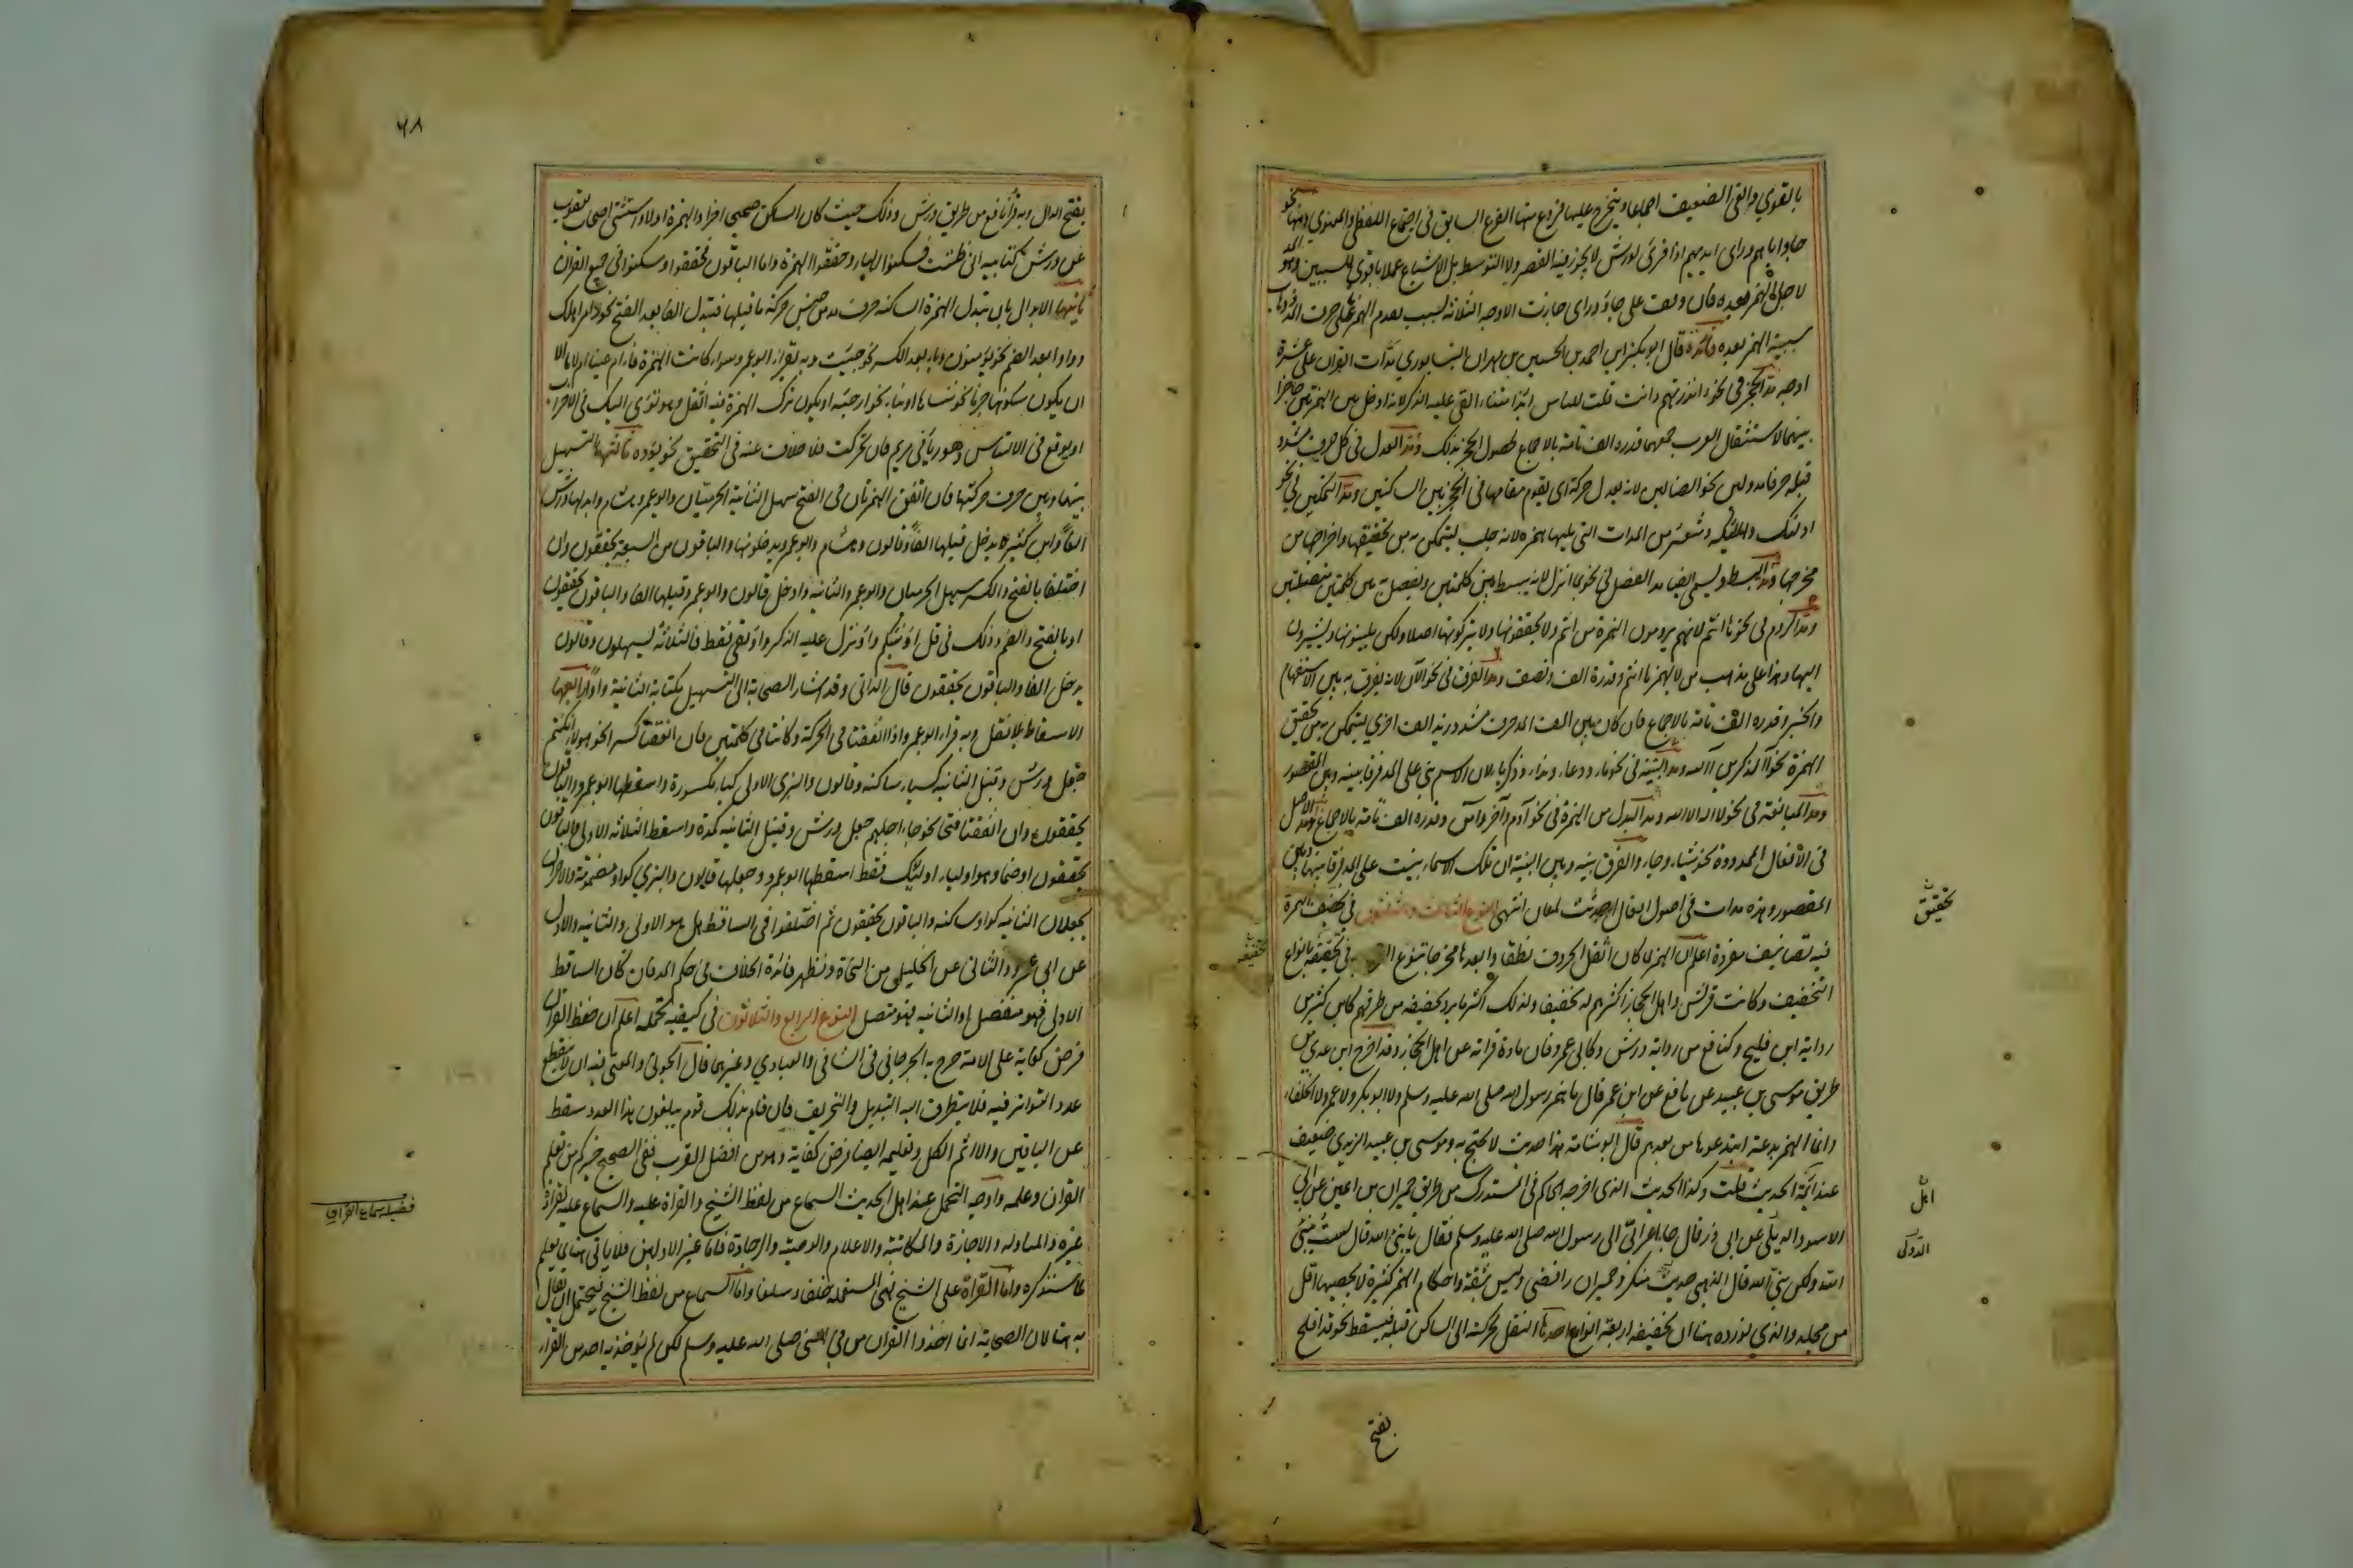 بالقوي والغي الضعيف اجماعا ويتخرج عليها فروع منها الفرع السابق في اجتماع اللفظي والمعنوي ومنها نحو
جاوا اباهم وراى ايديهم اذا قرئ لورش لا يجوز فيه القصر ولا التوسط بل الاشباع عملا باقوى السببين وهو المد
لاجل الهمز بعده فان وقف على جاؤ وراى جازت الاوجه الثلاثة بسبب تقدم الهمز على حرف المد وذهاب
سببية الهمز بعده فائدة قال ابو بكر احمد بن الحسين بن مهران النيسابوري مدات القران على عشرة
اوجه مد الحجز في نحو اانذرتهم واانت قلت للناس ائذا متنا ءالقي عليه الذكر لانه ادخل بين الهمزتين حاجزا
بينهما لاستثقال العرب جمعهما وقدره الف تامة بالاجماع لحصول الحجز بذلك ومد العدل في كل حرف مشدد
قبله حرف مد ولين نحو الضالين لانه يعدل حركة اى يقوم مقامها في الحجز بين الساكنين ومد التمكين في نحو
اولئك والملئكة وشعائر من المدات التي تليها همزة لانه جلب ليتمكن به من تحقيقها واخراجها من
مخرجها ومد البسط ويسمى ايضا مد الفصل في نحو بما انزل لانه يبسط بين كلمتين ويفصل به بين كلمتين متصلتين
ومد الروم في نحو ها انتم لانهم يرومون الهمزة من انتم ولا يحققونها ولا يتركونها اصلا ولكن يلينونها ويشيرون
اليها وهذا على مذهب من لا يهمز ها انتم وقدره الف ونصف ومد الفرق في نحو الآن لانه يفرق به بين الاستفهام
والخبر وقدره الف تامة بالاجماع فان كان بين الف المد حرف مشدد زيد الف اخرى ليتمكن به من تحقيق
الهمزة نحو آلذاكرين آلله ومد البنية في نحو ماء ودعاء ونداء وزكرياء لان الاسم بني على المد فرقا بينه وبين المقصور
ومد المبالغة في نحو لا اله الا الله ومد البدل من الهمزة في نحو آدم وآخر وآمن وقدره الف تامة بالاجماع ومد الاصل
في الافعال الممدودة نحو يشاء وجاء والفرق بينه وبين البنية ان تلك الاسماء بنيت على المد فرقا بينها وبين
المقصور وهذه مدات في اصول افعال احدثت لمعان انتهى النوع الثالث والثلثون في تخفيف الهمزة
فيه تصانيف مفردة اعلم ان الهمز لما كان اثقل الحروف نطقا وابعدها مخرجا تنوع العرب في تخفيفه بانواع
التخفيف وكانت قريش واهل الحجاز اكثرهم له تخفيفا ولذلك اكثر ما يرد تخفيفه من طرقهم كابن كثير من
رواية ابن فليح وكنافع من رواية ورش وكابي عمرو فان مادة قراءته عن اهل الحجاز وقد اخرج ابن عدي من
طريق موسى بن عبيده عن نافع عن ابن عمر قال ما همز رسول الله صلى الله عليه وسلم ولا ابو بكر ولا عمر ولا الخلفاء
وانما الهمز بدعة ابتدعوها من بعدهم قال ابو شامة هذا حديث لا يحتج به وموسى بن عبيد الزيدي ضعيف
عند ائمة الحديث قلت وكذا الحديث الذي اخرجه الحاكم في المستدرك من طريق حمران بن اعين عن ابي
الاسود الديلي عن ابي ذر قال جاء اعرابي الى رسول الله صلى الله عليه وسلم فقال يا نبئ الله قال لست بنبئ
الله ولكني نبي الله قال الذهبي حديث منكر وحمران رافضي وليس بثقة واحكام الهمز كثيرة لا يحصيها اقل
من مجلد والذي نورده هنا ان تخفيفه اربعة انواع احدها النقل لحركته الى الساكن قبله فيسقط نحو قد افلح
تحقيق
اهل
الدؤلى
تخفيفه
بفتح
٦٨
بفتح الدال وبه قرأ نافع من طريق ورش وذلك حيث كان الساكن صحيحا اخرا والهمزة اولا واستثنى اصحاب يعقوب
عن ورش كتابيه اني ظننت فسكنوا الهاء وحققوا الهمزة واما الباقون فحققوا وسكنوا في جميع القرآن
ثانيها الابدال بان تبدل الهمزة الساكنة حرف مد من جنس حركة ما قبلها فتبدل الفا بعد الفتح نحو وامر اهلك
وواوا بعد الضم نحو يؤمنون وياء بعد الكسر نحو جئت وبه يقرأ ابو عمرو سواء كانت الهمزة فاء ام عينا ام لاما الا
ان يكون سكونها جزما نحو ننساها او بناء نحو ارجئه او يكون ترك الهمزة فيه اثقل وهو تؤي اليك في الاحزاب
او يوقع في الالتباس وهو رئيا في مريم فان تحركت فلا خلاف عنه في التحقيق نحو يؤده ثالثها التسهيل
بينها وبين حرف حركتها فان اتفق الهمزتان في الفتح سهل الثانية الحرميان وابو عمرو وهشام وابدلها ورش
الفا وابن كثير لا يدخل قبلها الفا وقالون وهشام وابو عمرو يدخلونها والباقون من السبعة يحققون وان
اختلفا بالفتح والكسر سهل الحرميان وابو عمرو الثانية وادخل قالون وابو عمرو قبلها الفا والباقون يحققون
او بالفتح والضم وذلك في قل اؤنبئكم واؤنزل عليه الذكر واؤلقي فقط فالثلاثة يسهلون وقالون
يدخل الفا والباقون يحققون قال الداني وقد اشار الصحابة الى التسهيل بكتابة الثانية واوا رابعها
الاسقاط بلا نقل وبه قرا ابو عمرو اذا اتفقتا في الحركة وكانتا في كلمتين فان اتفقتا كسرا نحو هولاء ان كنتم
جعل ورش وقنبل الثانية كياء ساكنة وقالون والبزي الاولى كياء مكسورة واسقطها ابو عمرو والباقون
يحققون وان اتفقتا فتحا نحو جاء اجلهم جعل ورش وقنبل الثانية كمدة واسقط الثلاثة الاولى والباقون
يحققون او ضما وهو اولياء اولئك فقط اسقطها ابو عمرو وجعلها قالون والبزي كواو مضمومة والاخران
يجعلان الثانية كواو ساكنة والباقون يحققون ثم اختلفوا في الساقط هل هو الاولى او الثانية والاول
عن ابي عمرو والثاني عن الخليل من النحاة وتظهر فائدة الخلاف في حكم المد فان كان الساقط
الاولى فهو منفصل او الثانية فهو متصل النوع الرابع والثلاثون في كيفية تحمله اعلم ان حفظ القران
فرض كفاية على الامة صرح به الجرجاني في الشافي والعبادي وغيرهما قال الجويني والمعنى فيه ان لا ينقطع
عدد التواتر فيه فلا يتطرق اليه التبديل والتحريف فان قام بذلك قوم يبلغون هذا العدد سقط
عن الباقين والا اثم الكل وتعليمه ايضا فرض كفاية وهو من افضل القرب ففي الصحيح خيركم من تعلم
القران وعلمه واوجه التحمل عند اهل الحديث السماع من لفظ الشيخ والقراءة عليه والسماع عليه بقراءة
غيره والمناولة والاجازة والمكاتبة والاعلام والوصية والوجادة فاما غير الاولين فلا ياتي هنا لما يعلم
مما سنذكره واما القراة على الشيخ فهي المستعملة خلفا وسلفا واما السماع من لفظ الشيخ فيحتمل ان يقال
به هنا لان الصحابة انما اخذوا القران من في النبي صلى الله عليه وسلم لكن لم ياخذ به احد من القراء
فضيلة سماع القران